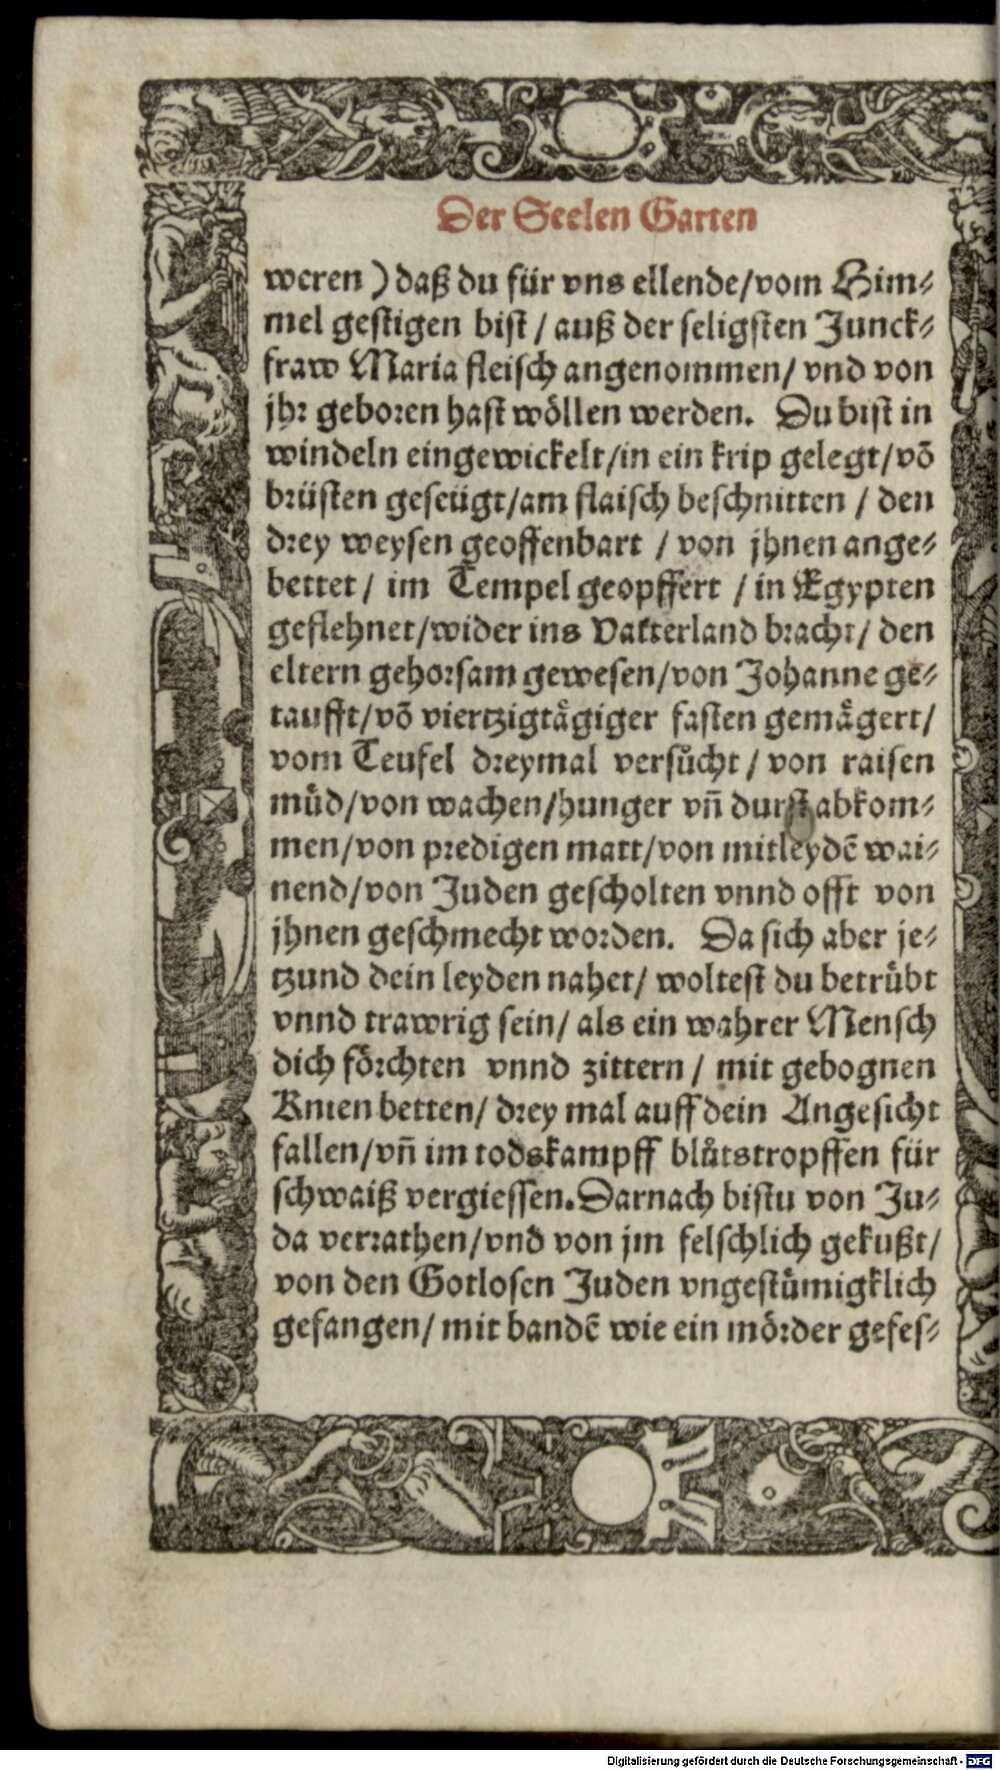 Der Seelen Garten
weren ) daß du für vns ellende/vom Him⸗
mel gestigen bist / auß der seligsten Junck⸗
fraw Maria fleisch angenommen/ vnd von
jhr geboren hast wöllen werden. Du bist in
windeln eingewickelt/in ein krip gelegt/võ
brüsten geseügt/am flaisch beschnitten / den
drey weysen geoffenbart / von jhnen ange⸗
bettet / im Tempel geopffert / in Egypten
geflehnet/wider ins Vatterland bracht/ den
eltern gehorsam gewesen/von Johanne ge⸗
taufft/võ viertzigtägiger fasten gemägert/
vom Teufel dreymal versůcht / von raisen
müd/von wachen/hunger vñ durst abkom⸗
men/von predigen matt/von mitleydẽ wai⸗
nend/von Juden gescholten vnnd offt von
jhnen geschmecht worden. Da sich aber je⸗
tzund dein leyden nahet/ woltest du betrübt
vnnd trawrig sein/ als ein wahrer Mensch
dich förchten vnnd zittern / mit gebognen
Knien betten/ drey mal auff dein Angesicht
fallen/vñ im todskampff blůtstropffen für
schwaiß vergiessen. Darnach bistu von Ju⸗
da verrathen/vnd von jm felschlich gekußt/
von den Gotlosen Juden vngestümigklich
gefangen/ mit bandẽ wie ein mörder gefes⸗
Digitalisierung gefördert durch die Deutsche Forschungsgemeinschaft - DFG